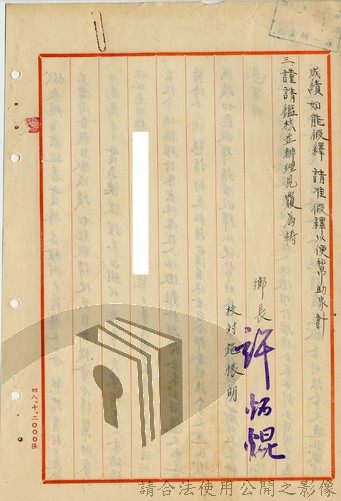 成績如能假釋請准假釋以便幫助家計
三謹請鑑核並辦理見覆為禱
鄉長
許炳焜
校對施振明
四八、十、二〇〇〇張
請合法使用公開之影像